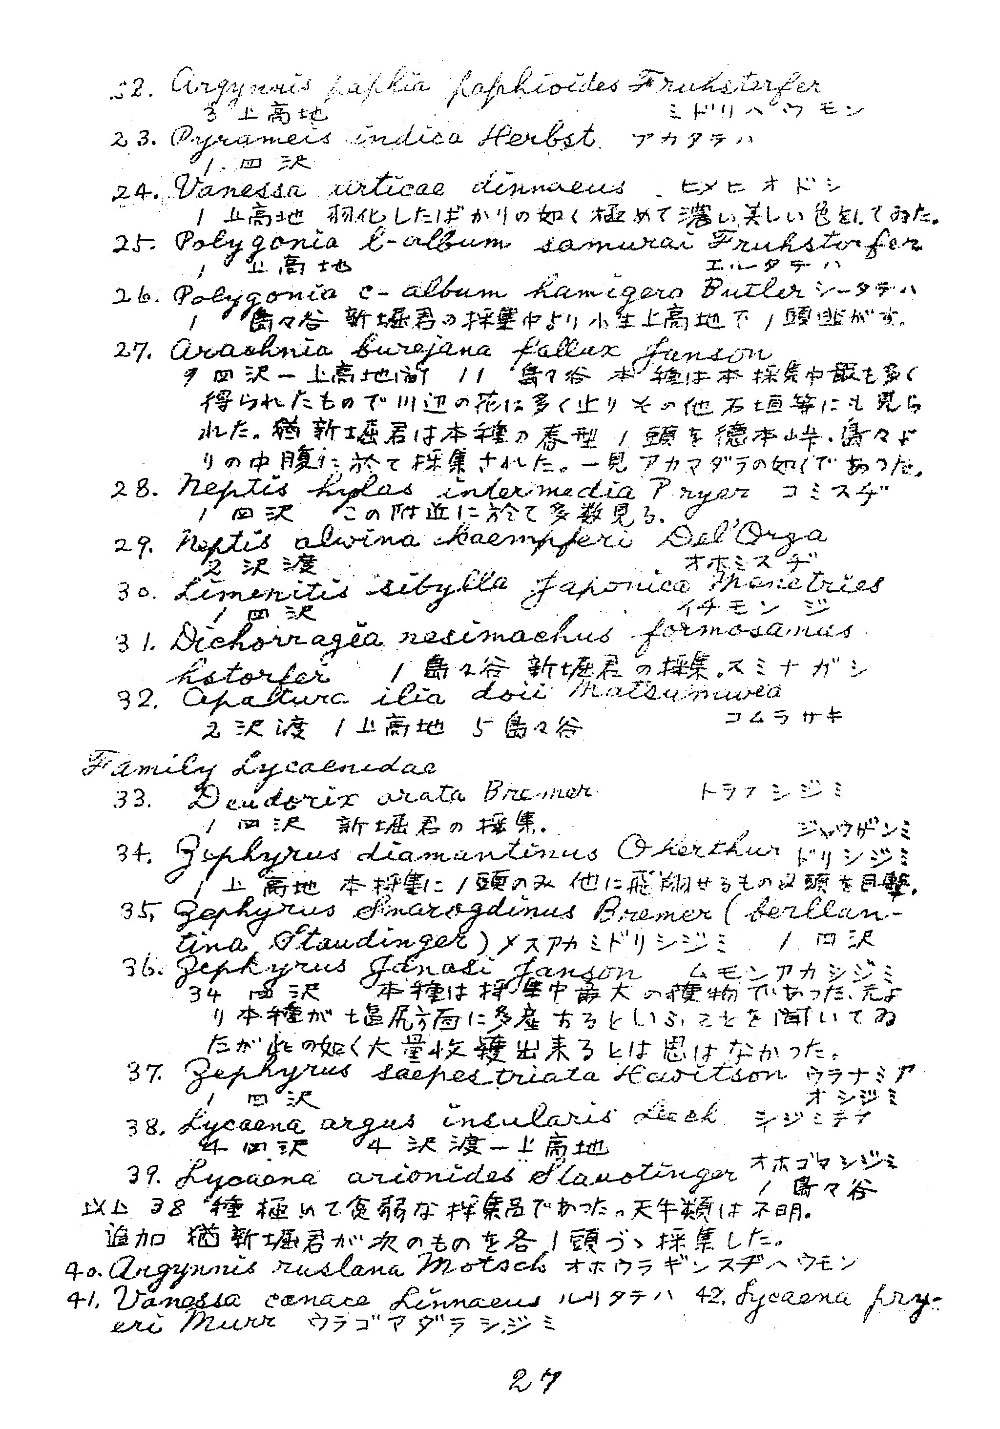 22. Argynnis paphia paphioides Fruhstorfer
3 上高地 ミドリヘウモン
23. Pyrameis indica Herbst. アカタテハ
1. 四沢
24. Vanessa urticae dinnaeus. ヒメヒオドシ
1 上高地 羽化したばかりの如く極めて濃い美しい色をしてゐた。
25. Polygonia l-album samurai Fruhstorfer
1 上高地 エルタテハ
26. Polygonia c-album hamigera Butler シータテハ
1 島々谷 新堀君の採集中より小生上高地で1頭逃がす。
27. Arachnia burejana fallax Janson
9 四沢ー上高地間 11 島々谷 本種は本採集中最も多く
得られたもので川辺の花に多く止りその他石垣等にも見ら
れた。猶新堀君は本種の春型1頭を徳本峠.島々よ
りの中腹に於て採集された。一見アカマダラの如くであつた。
28. Neptis hylas intermedia Pryer コミスヂ
1 四沢 この附近に於て多数見る.
29. Neptis alwina kaempferi Del'Orza
2 沢渡 オホミスヂ
30. Limenitis sibylla japonica Menetries
1 四沢 イチモンジ
31. Dichorragia nesimachus formosanus
hstorfer 1 島々谷 新堀君の採集. スミナガシ
32. Apatura ilia doii Matsumura
2 沢渡 1上高地 5 島々谷 コムラサキ
Family Lycaenidae
33. Deudorix arata Bremer トラフシジミ
1 四沢 新堀君の採集.
34. Zephyrus diamantinus Oberthur ジャウザンミ
ドリシジミ
1 上高地 本採集に1頭のみ他に飛翔せるもの2頭を目撃.
35. Zephyrus Smarogdinus Bremer (berllan-
tina Staudinger) メスアカミドリシジミ 1. 四沢
36. Zephyrus Jonasi Janson ムモンアカシジミ
34 四沢 本種は採集中最大の獲物であつた.元よ
り本種が塩尻方面に多産するといふことを聞いてゐ
たが此の如く大量收穫出来るとは思はなかつた。
37. Zephyrus saepestriata Hewitson ウラナミア
1 四沢 オシジミ
38. Lycaena argus insularis Leech シジミテフ
4 四沢 4 沢渡ー上高地
39. Lycaena arionides Staudinger オホゴマシジミ
1 島々谷
以上 38 種極めて貧弱な採集品であつた。天牛類は不明.
追加 猶新堀君が次のものを各1頭づゝ採集した。
40. Argynnis ruslana Motsch オホウラギンスヂヘウモン
41. Vanessa canace Linnaeus ルリタテハ 42. Lycaena pry-
eri Murr ウラゴマダラシジミ
27